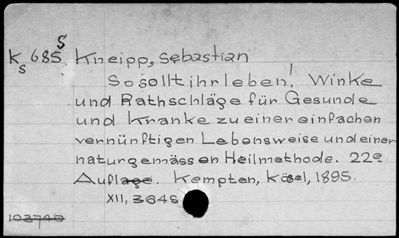 Kneipp, Sebastian
So sollt ihr leben! Winke
und Rathschläge für Gesunde
und Kranke zu einer einfachen
vernünftigen Lebensweise und einer
naturgemässen Heilmethode. 22e
Auflage. Kempten, Kösel, 1895.
XII, 364 S
103740